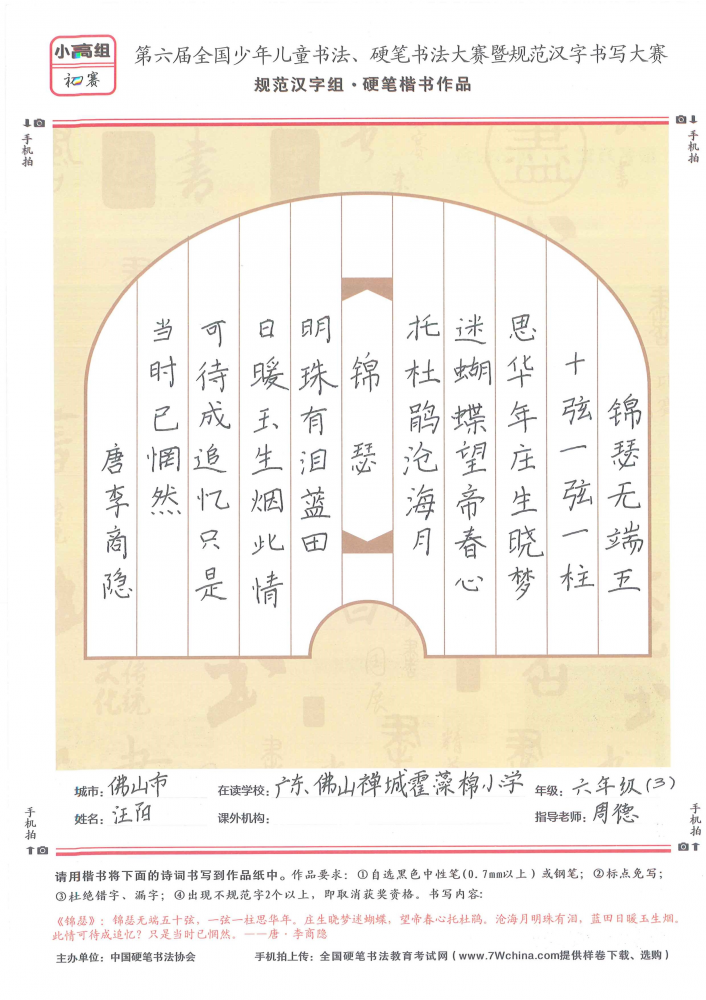 小高组
初赛
第六届全国少年儿童书法、硬笔书法大赛暨规范汉字书写大赛
规范汉字组·硬笔楷书作品
手机拍
手机拍
锦瑟无端五
十弦一弦一柱
思华年庄生晓梦
迷蝴蝶望帝春心
托杜鹃沧海月
锦瑟
明珠有泪蓝田
日暖玉生烟此情
可待成追忆只是
当时已惘然
唐李商隐
城市：佛山市 在读学校：广东、佛山禅城霍藻棉小学 年级：六年级（3）
姓名：汪阳 课外机构： 指导老师：周德
手机拍
手机拍
请用楷书将下面的诗词书写到作品纸中。作品要求：①自选黑色中性笔(0.7mm以上）或钢笔；②标点免写；
③杜绝错字、漏字；④出现不规范字2个以上，即取消获奖资格。书写内容：
《锦瑟》：锦瑟无端五十弦，一弦一柱思华年。庄生晓梦迷蝴蝶，望帝春心托杜鹃。沧海月明珠有泪，蓝田日暖玉生烟。
此情可待成追忆？只是当时已惘然。——唐·李商隐
主办单位：中国硬笔书法协会 手机拍上传：全国硬笔书法教育考试网（www.7Wchina.com提供样卷下载、选购）